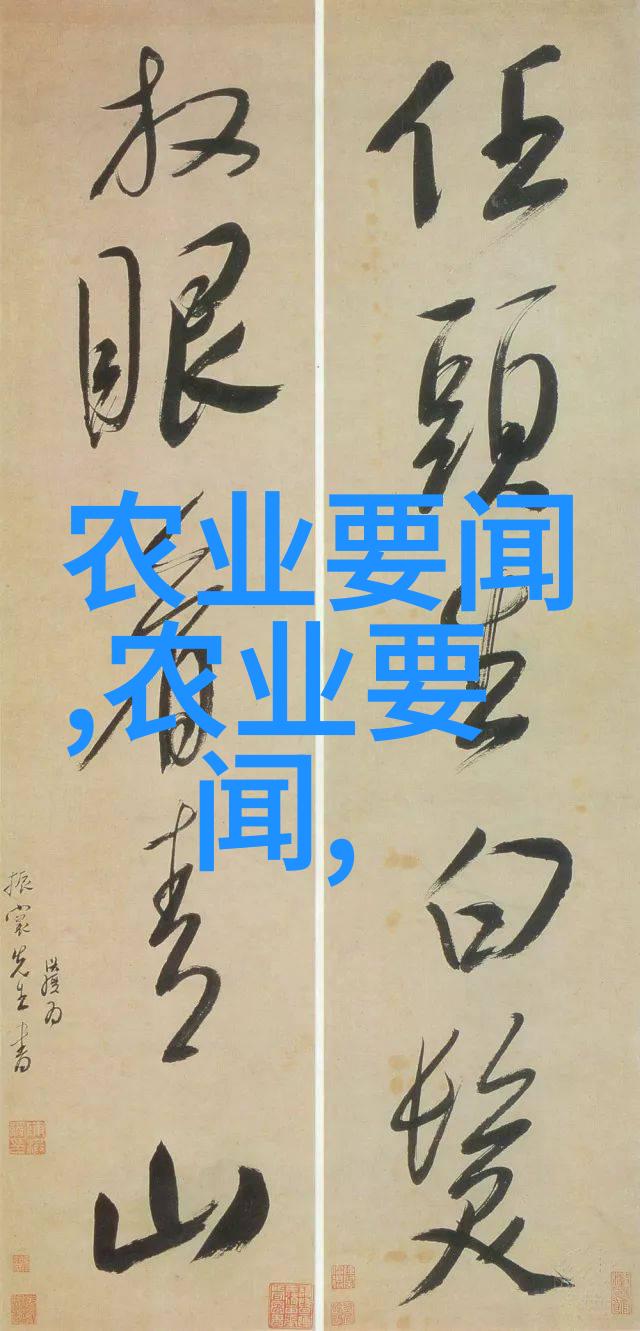 任頭生白髮
放眼看青山
农业要闻
,农业要
闻,